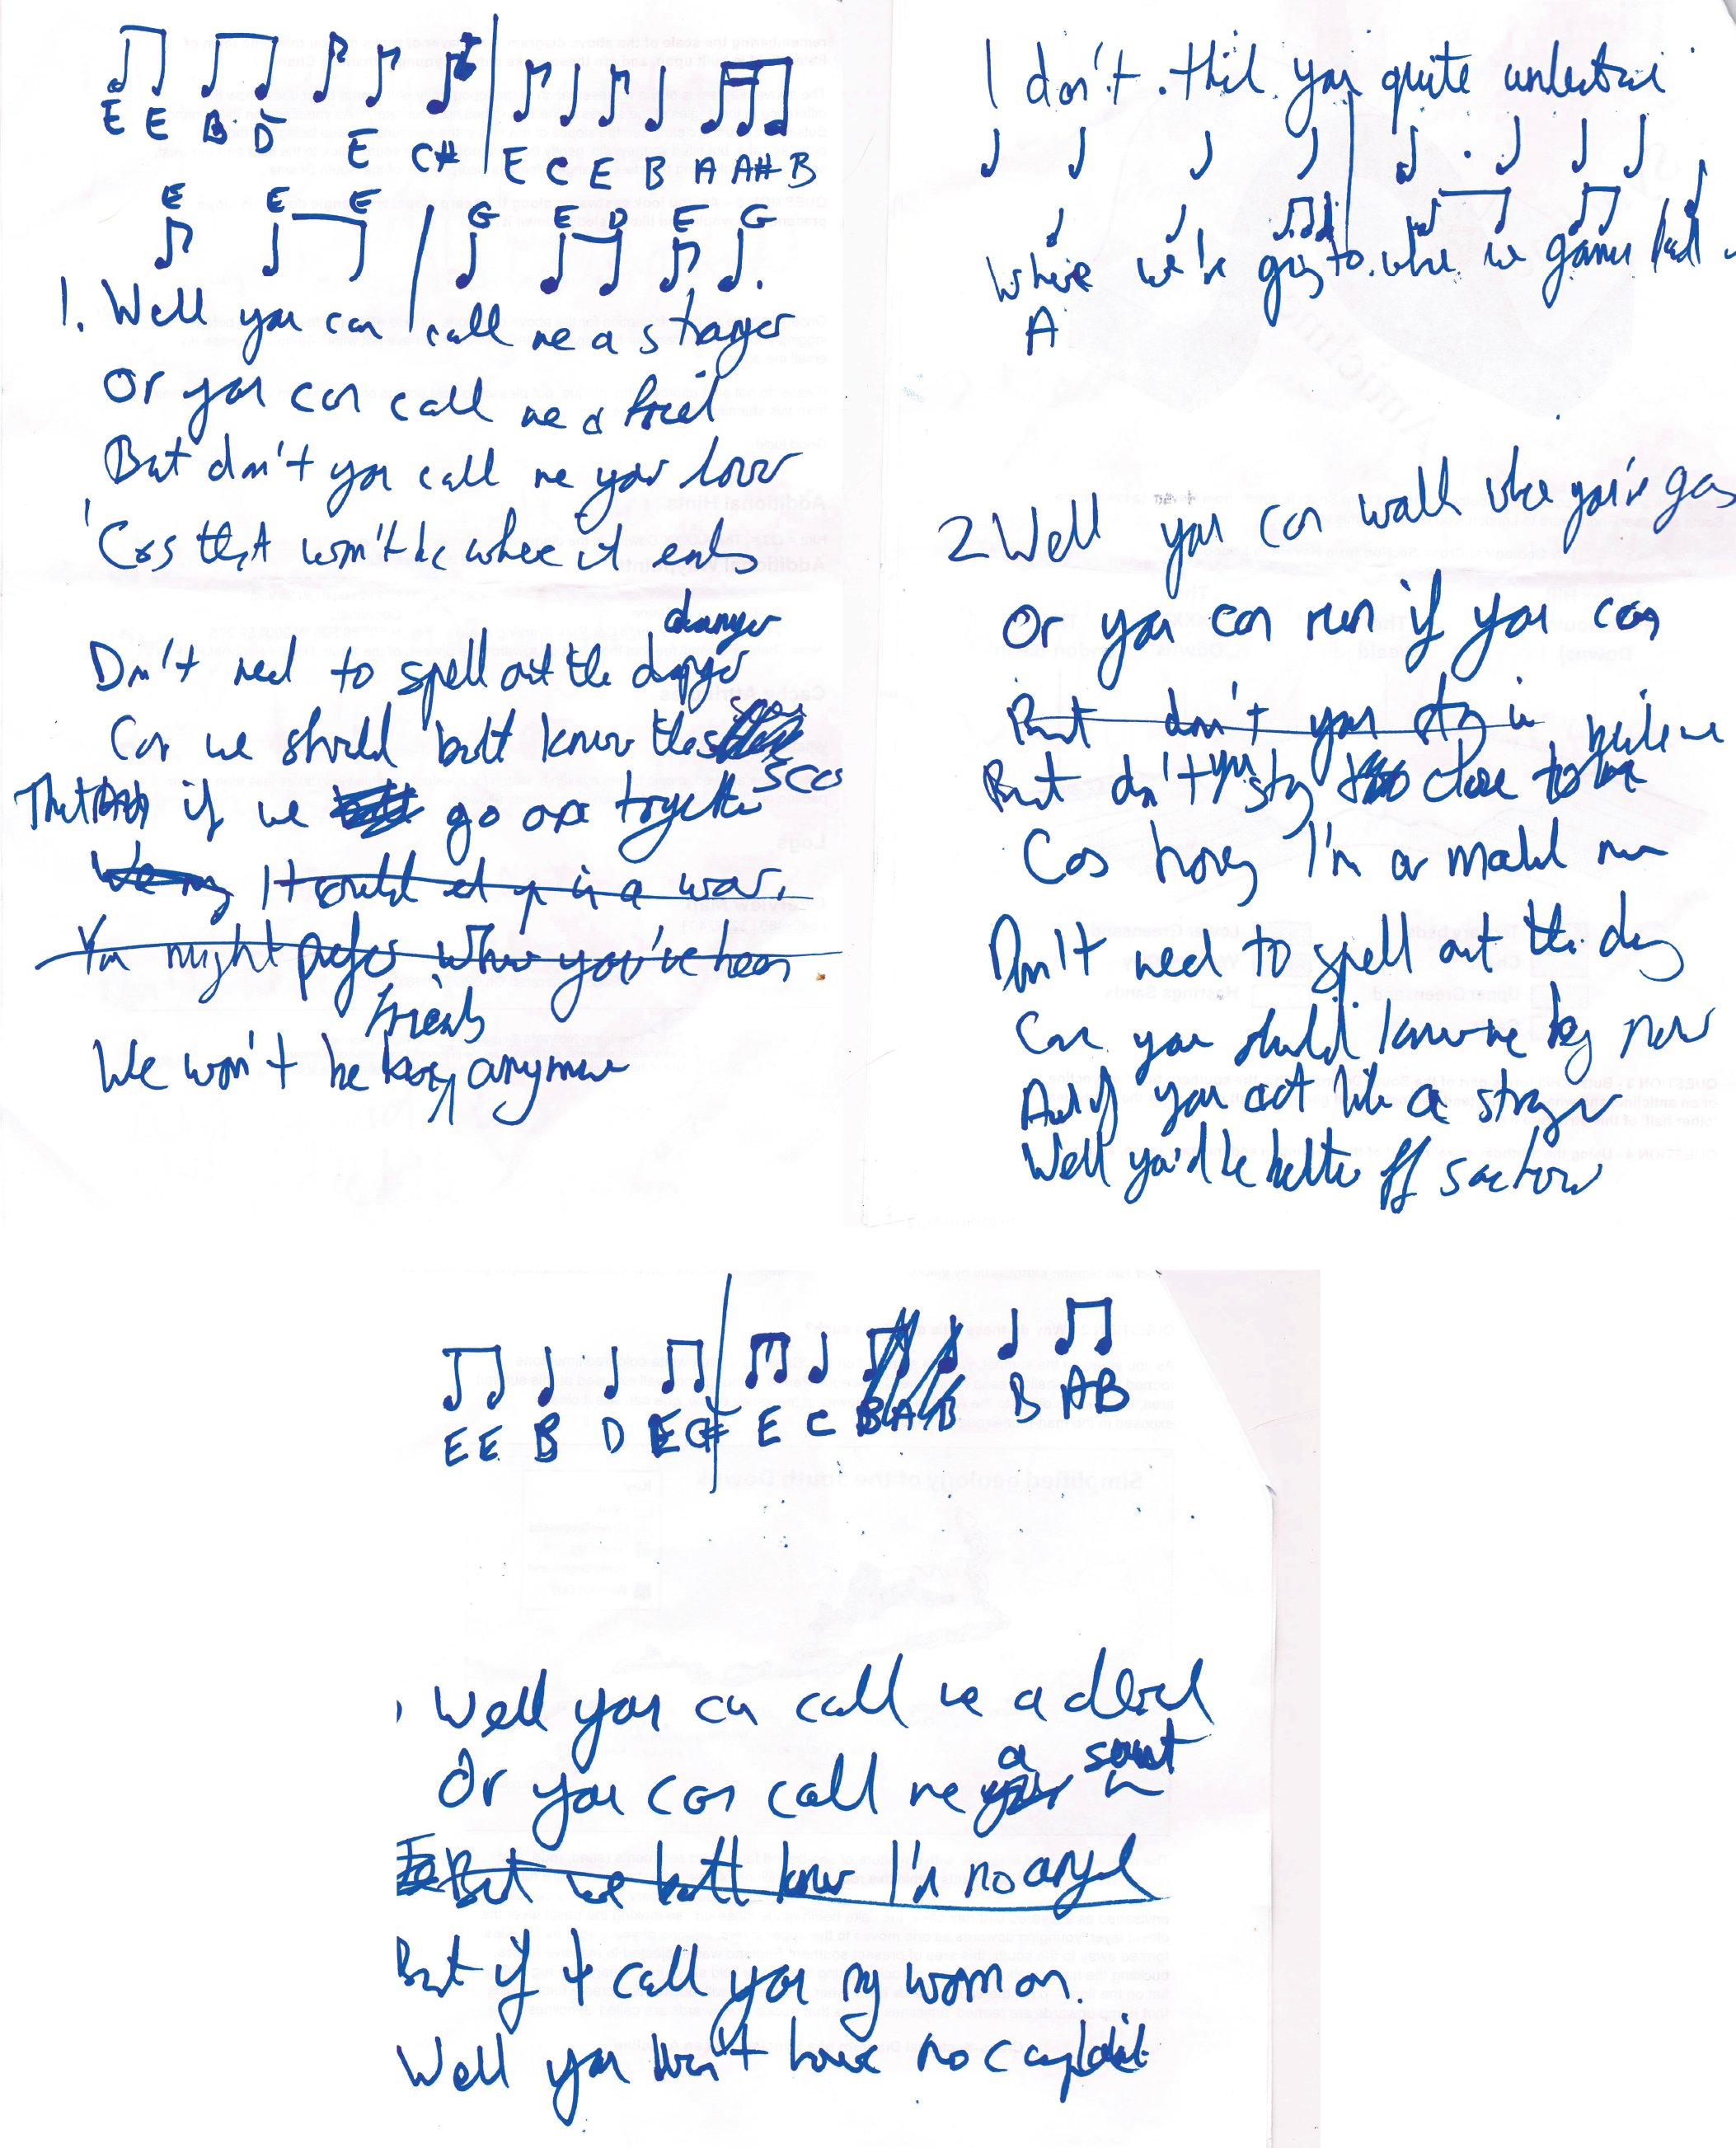 E E B D E C# E C E B A A# B
E E E G E D E G
1. Well you can call me a stranger
Or you can call me a friend
But don't you call me your lover
'Cos that won't be where it ends
danger
Don't need to spell out the danger
Cos we should both know the
score
That if we go on together
It could end up in a war.
You might prefer where you've been
friends
We won't be anymore
I don't think you quite understand
where we're going to where we gonna
A
2 Well you can walk where you're going
Or you can run if you can
But don't you stay in believe
But don't you stay too close to me
Cos honey I'm a marked man
Don't need to spell out the danger
Cos you should know me by now
And if you act like a stranger
Well you'd be better off somehow
E E B D E C# E C B A B B A B
Well you can call me a devil
a saint
Or you can call me
But we both know I'm no angel
But if I call you my woman.
Well you won't have no complaint